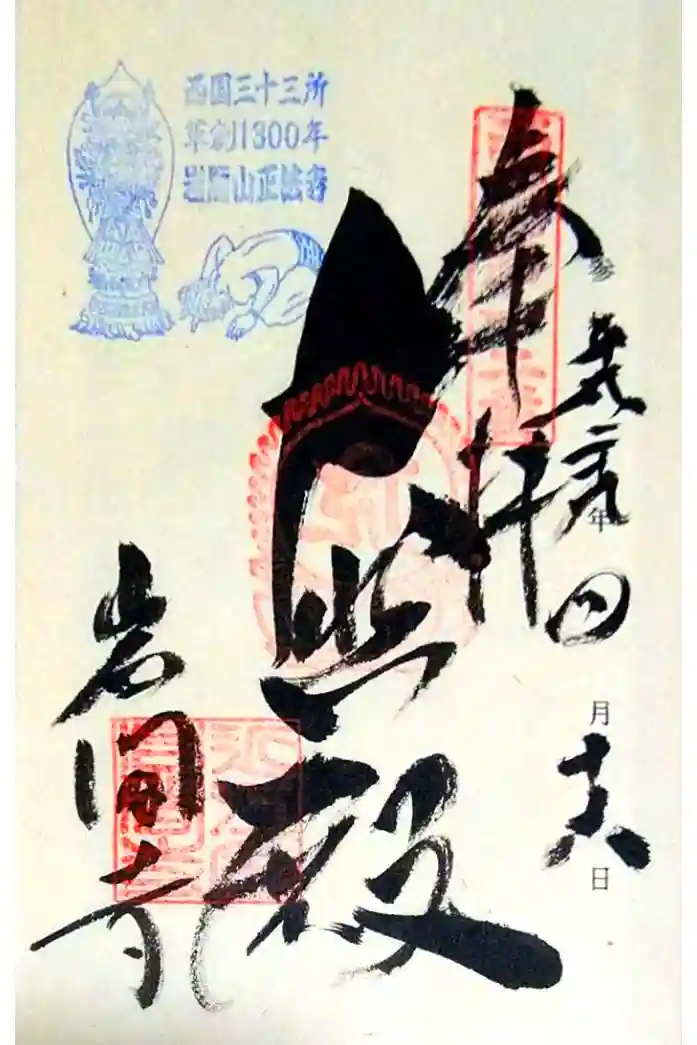 奉拝
平成二九年四月十六日
大悲殿
岩間寺
西国三十三所
草創1300年
岩間山正法寺